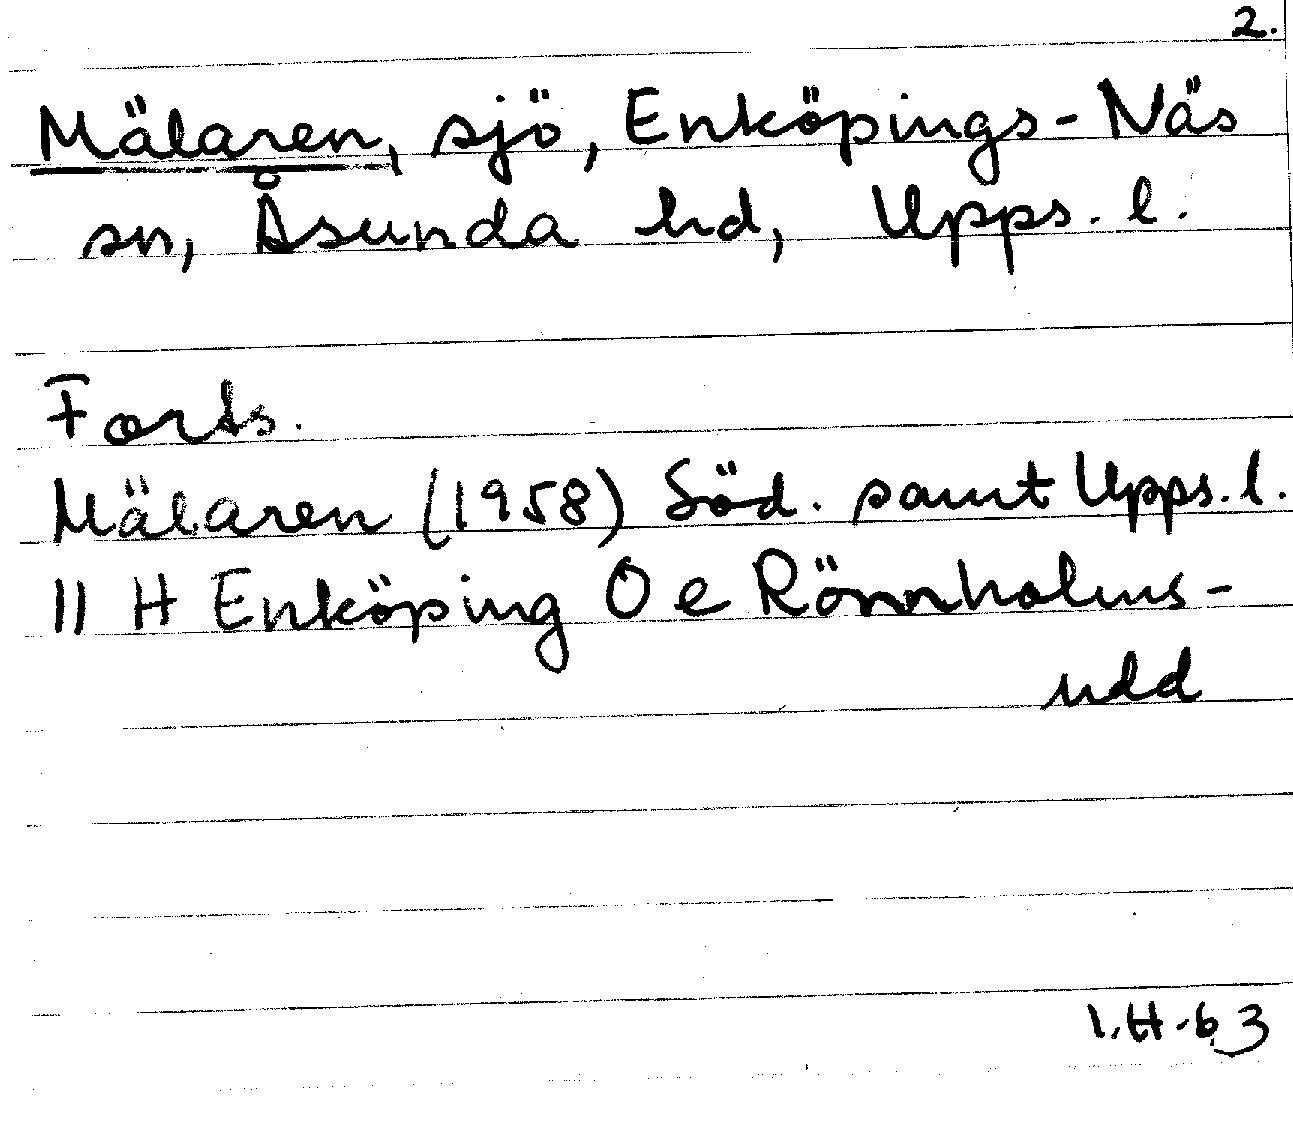 2.
Mälaren, sjö, Enköpings-Näs
sn, Åsunda hd, Upps. l.
Forts.
Mälaren (1958) Söd. samt Upps. l.
11 H Enköping O e Rönnholms-
udd
I.H-63